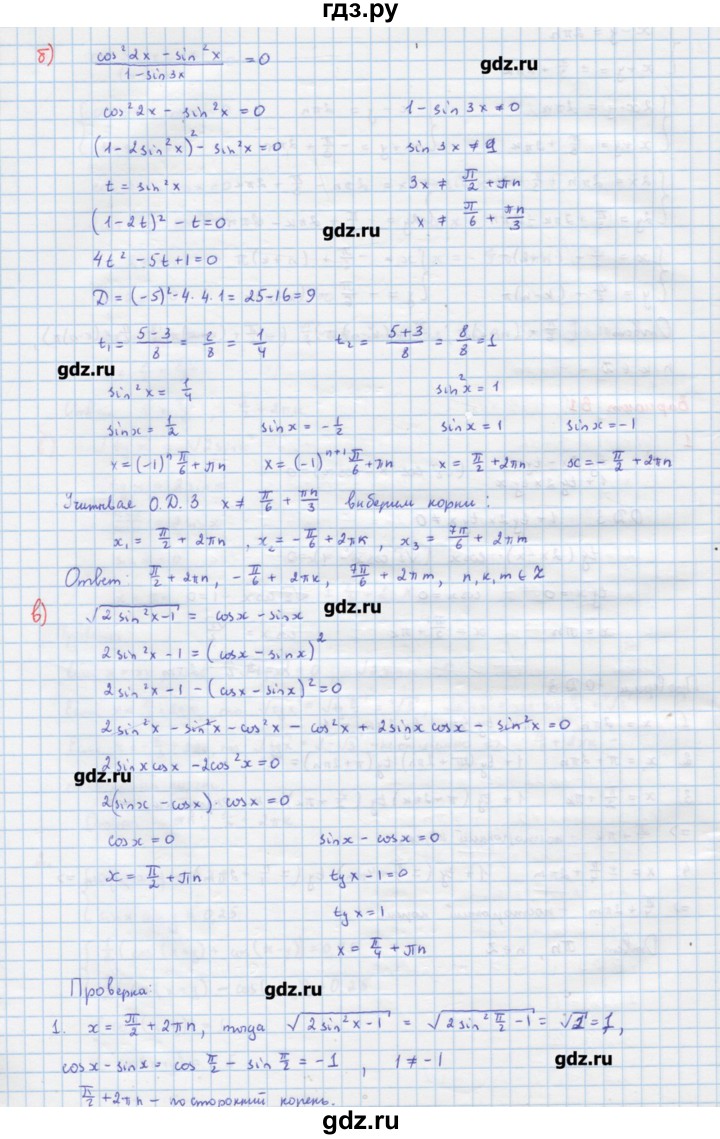 гдз.ру
б) (cos²2x - sin²x)/(1-sin3x) = 0
gdz.ru
cos²2x - sin²x = 0 1 - sin 3x ≠ 0
(1-2sin²x)² - sin²x = 0 sin 3x ≠ 1
t = sin²x 3x ≠ π/2 + πn
(1-2t)² - t = 0 x ≠ π/6 + πn/3
gdz.ru
4t² - 5t + 1 = 0
D = (-5)² - 4·4·1 = 25-16 = 9
t₁ = (5-3)/8 = 2/8 = 1/4 t₂ = (5+3)/8 = 8/8 = 1
gdz.ru
sin²x = 1/4 sin²x = 1
sinx = 1/2 sinx = -1/2 sinx = 1 sinx = -1
x = (-1)ⁿ π/6 + πn x = (-1)ⁿ⁺¹ π/6 + πn x = π/2 + 2πn x = -π/2 + 2πn
Учитывая О.Д.З x ≠ π/6 + πn/3 выберим корни:
x₁ = π/2 + 2πn, x₂ = -π/6 + 2πк, x₃ = 7π/6 + 2πm
Ответ: π/2 + 2πn, -π/6 + 2πк, 7π/6 + 2πm, n, к, m ∈ Z
gdz.ru
в) √(2sin²x-1) = cosx - sinx
2sin²x - 1 = (cosx - sinx)²
2sin²x - 1 - (cosx - sinx)² = 0
2sin²x - sin²x - cos²x - cos²x + 2sinx cosx - sin²x = 0
2sinxcosx - 2cos²x = 0
gdz.ru
2(sinx - cosx)·cosx = 0
cosx = 0 sinx - cosx = 0
x = π/2 + πn tgx - 1 = 0
tgx = 1
x = π/4 + πn
Проверка:
gdz.ru
1. x = π/2 + 2πn, тогда √(2sin²x-1) = √(2sin²π/2 - 1) = √1 = 1,
cosx - sinx = cos π/2 - sin π/2 = -1, 1 ≠ -1
gdz.ru
π/2 + 2πn - посторонний корень.
gdz.ru